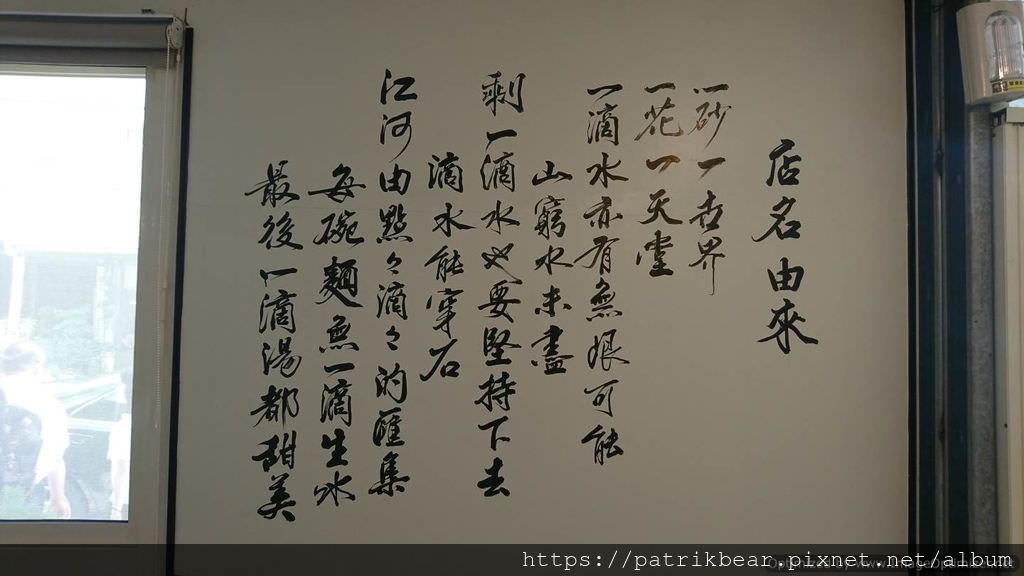 店名由來
一砂一世界
一花一天堂
一滴水亦有無限可能
山窮水未盡
剩一滴水也要堅持下去
滴水能穿石
江河由點々滴々的匯集
每碗麵無一滴生水
最後一滴湯都甜美
https://patrikbear.pixnet.net/album